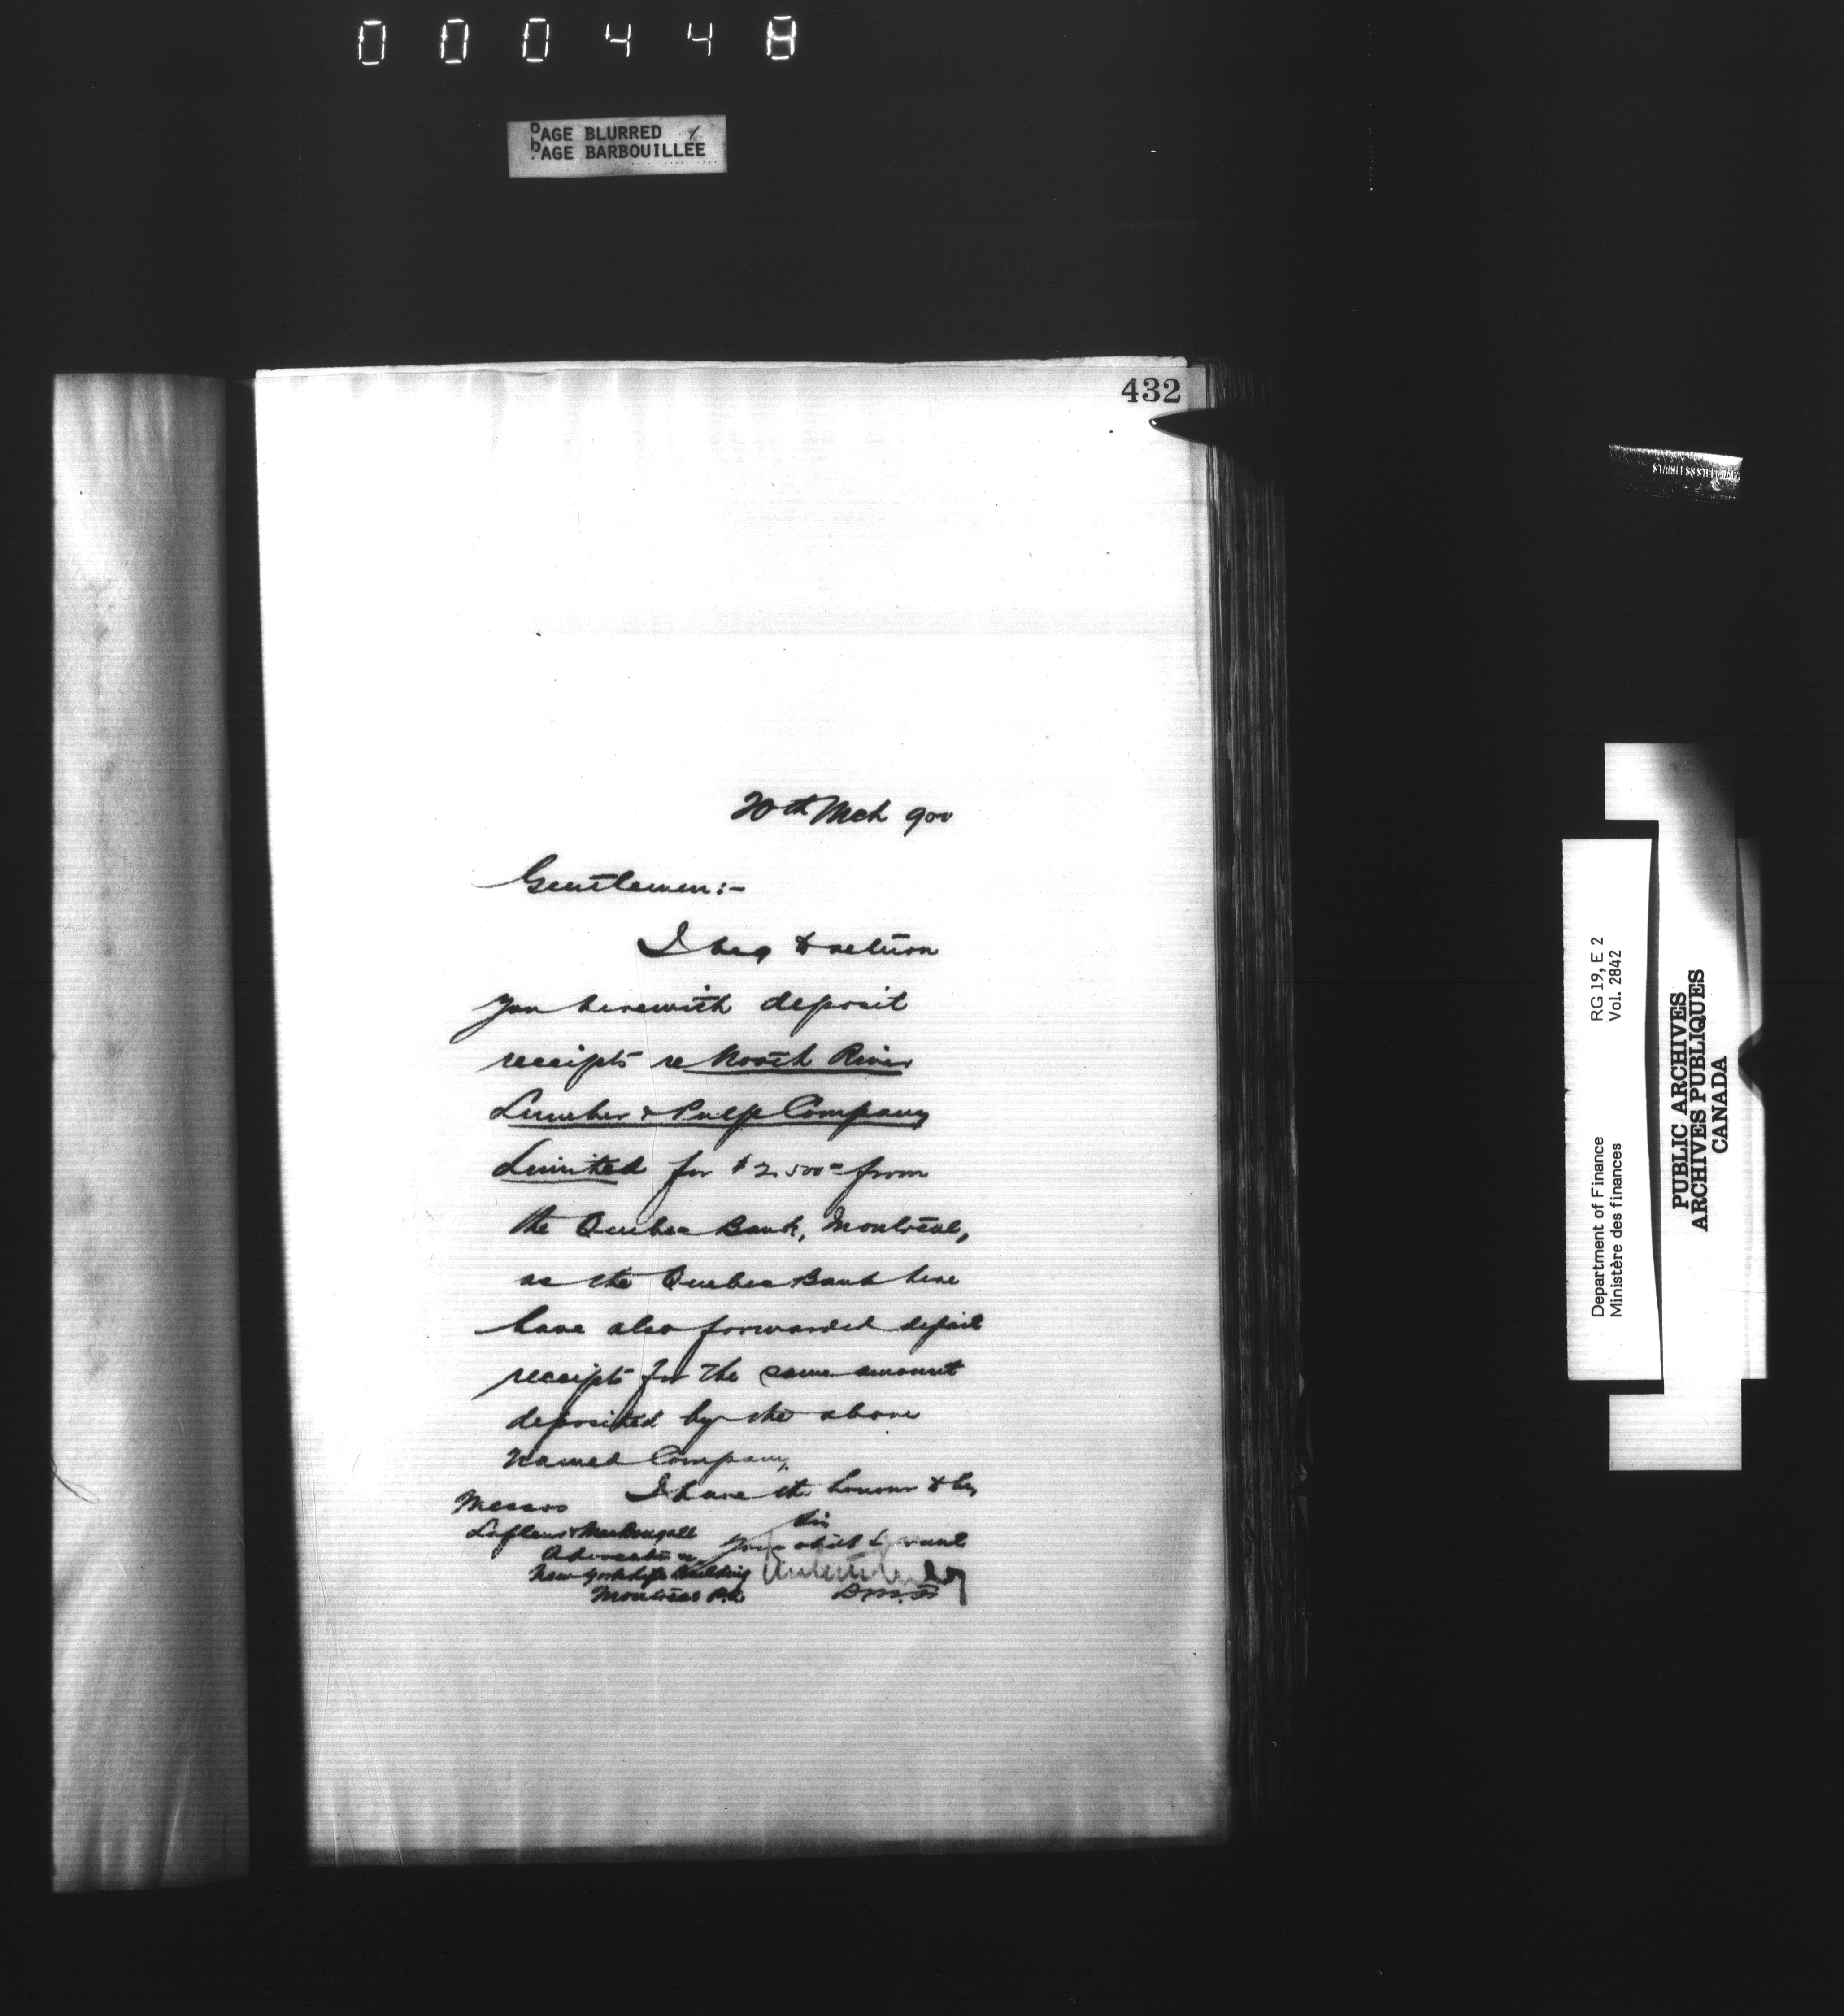 000448
PAGE BLURRED
PAGE BARBOUILLÉE
432
20th Mch 900
Gentlemen:-
I beg to return
you herewith deposit
receipts re North River
Lumber & Pulp Company
Limited for $2500 00 from
the Quebec Bank, Montreal,
as the Quebec Bank here
have also forwarded deposit
receipts for the same amount
deposited by the above
named Company.
I have the honour to be,
Sir
Your obdt Servant
D.M.F.
Messrs
Lafleur & MacDougall
Advocates &c
New York Life Building
Montreal P.Q.
Department of Finance RG 19, E 2
Ministère des finances Vol. 2842
PUBLIC ARCHIVES
ARCHIVES PUBLIQUES
CANADA